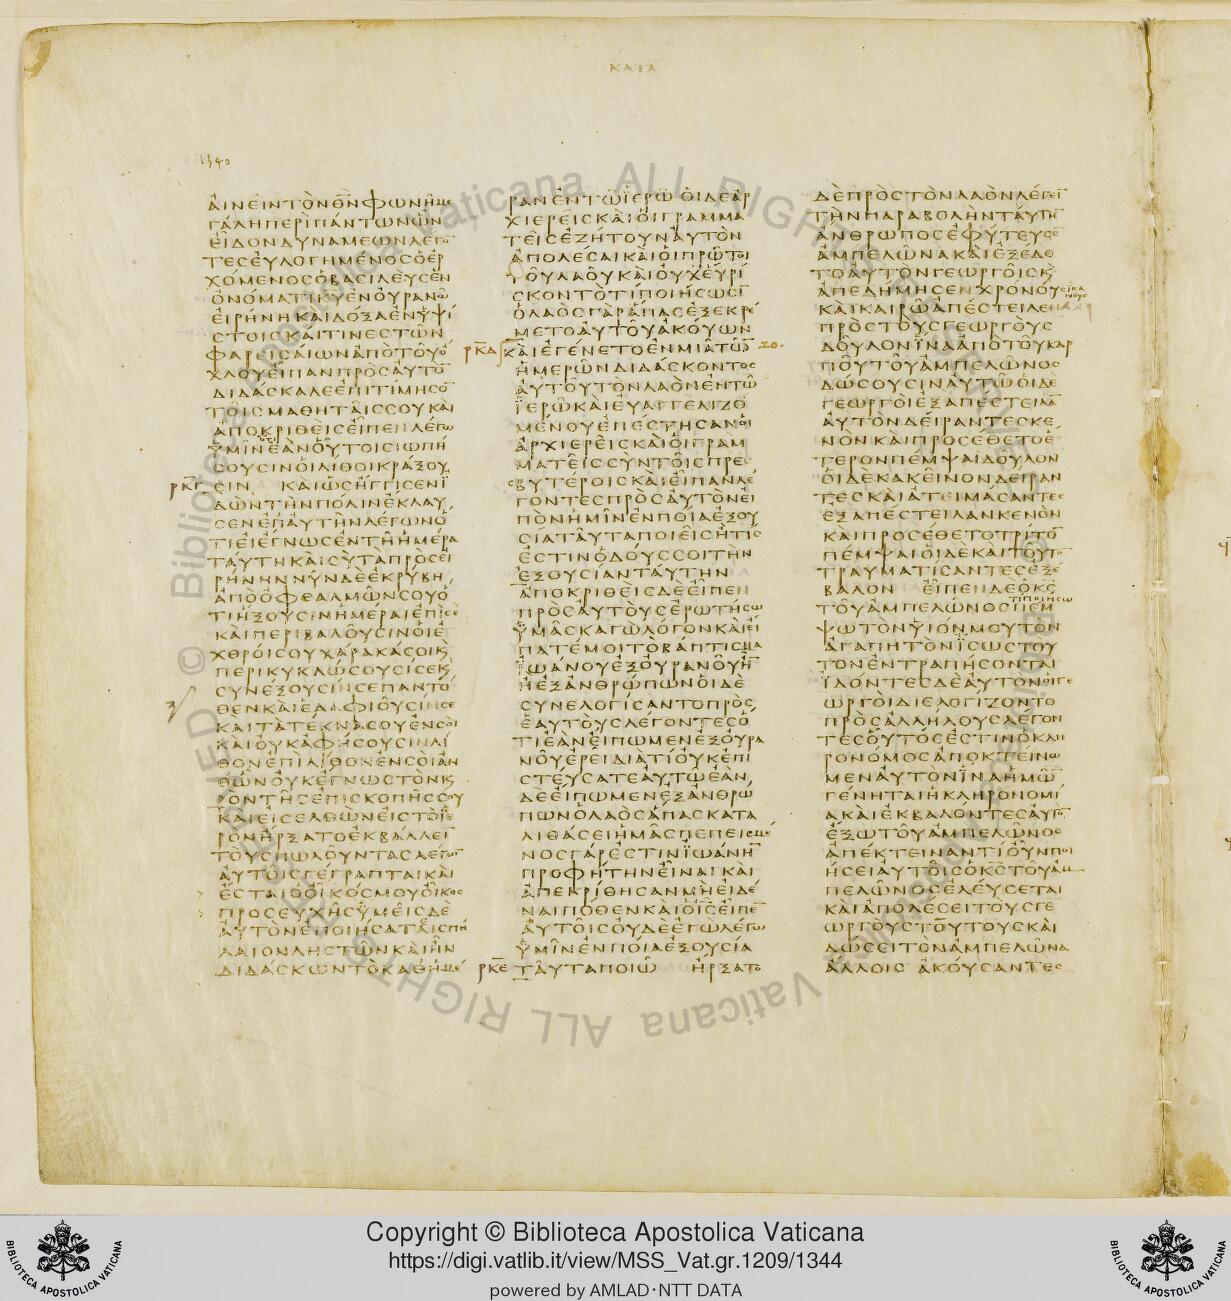 ΚΑΤΑ
1340
ΑΙΝΕΙΝΤΟΝΘ̅Ν̅ΦΩΝΗΜΕ
ΓΑΛΗΠΕΡΙΠΑΝΤΩΝΩΝ
ΕΙΔΟΝΔΥΝΑΜΕΩΝΛΕΓΟ̅
ΤΕΣΕΥΛΟΓΗΜΕΝΟΣΟΕΡ
ΧΟΜΕΝΟΣΟΒΑΣΙΛΕΥΣΕΝ
ΟΝΟΜΑΤΙΚ̅Υ̅ΕΝΟΥΡΑΝΩ
ΕΙΡΗΝΗΚΑΙΔΟΞΑΕΝΥΨΙ
ΣΤΟΙΣΚΑΙΤΙΝΕΣΤΩΝ
ΦΑΡΕΙΣΑΙΩΝΑΠΟΤΟΥΟ
ΧΛΟΥΕΙΠΑΝΠΡΟΣΑΥΤΟ̅
ΔΙΔΑΣΚΑΛΕΕΠΙΤΙΜΗΣΟ̅
ΤΟΙΣΜΑΘΗΤΑΙΣΣΟΥΚΑΙ
ΑΠΟΚΡΙΘΕΙΣΕΙΠΕΝΛΕΓΩ
ΥΜΙΝΕΑΝΟΥΤΟΙΣΙΩΠΗ
ΣΟΥΣΙΝΟΙΛΙΘΟΙΚΡΑΞΟΥ
ΡΚΓ ΣΙΝ ΚΑΙΩΣΗΓΓΙΣΕΝΙ
ΔΩΝΤΗΝΠΟΛΙΝΕΚΛΑΥ
ΣΕΝΕΠΑΥΤΗΝΛΕΓΩΝΟ
ΤΙΕΙΕΓΝΩΣΕΝΤΗΗΜΕΡΑ
ΤΑΥΤΗΚΑΙΣΥΤΑΠΡΟΣΕΙ
ΡΗΝΗΝΝΥΝΔΕΕΚΡΥΒΗ
ΑΠΟΟΦΘΑΛΜΩΝΣΟΥΟ
ΤΙΗΞΟΥΣΙΝΗΜΕΡΑΙΕΠΙΣΕ
ΚΑΙΠΕΡΙΒΑΛΟΥΣΙΝΟΙΕ
ΧΘΡΟΙΣΟΥΧΑΡΑΚΑΣΟΙΚ
ΠΕΡΙΚΥΚΛΩΣΟΥΣΙΣΕΚ
ΣΥΝΕΞΟΥΣΙΝΣΕΠΑΝΤΟ
ΘΕΝΚΑΙΕΔΑΦΙΟΥΣΙΝΣΕ
ΚΑΙΤΑΤΕΚΝΑΣΟΥΕΝΣΟΙ
ΚΑΙΟΥΚΑΦΗΣΟΥΣΙΝΛΙ
ΘΟΝΕΠΙΛΙΘΟΝΕΝΣΟΙΑΝ
ΘΩΝΟΥΚΕΓΝΩΣΤΟΝΚ
ΡΟΝΤΗΣΕΠΙΣΚΟΠΗΣΣΟΥ
ΚΑΙΕΙΣΕΛΘΩΝΕΙΣΤΟΪΕ
ΡΟΝΗΡΞΑΤΟΕΚΒΑΛΛΕΙ̅
ΤΟΥΣΠΩΛΟΥΝΤΑΣΛΕΓΩ̅
ΑΥΤΟΙΣΓΕΓΡΑΠΤΑΙΚΑΙ
ΕΣΤΑΙΟΟΙΚΟΣΜΟΥΟΙΚΟΣ
ΠΡΟΣΕΥΧΗΣΥΜΕΙΣΔΕ
ΑΥΤΟΝΕΠΟΙΗΣΑΤΑΙΣΠΗ
ΛΑΙΟΝΛΗΣΤΩΝΚΑΙΗΝ
ΔΙΔΑΣΚΩΝΤΟΚΑΘΗΜΕ
ΡΑΝΕΝΤΩΪΕΡΩΟΙΔΕΑΡ
ΧΙΕΡΕΙΣΚΑΙΟΙΓΡΑΜΜΑ
ΤΕΙΣΕΖΗΤΟΥΝΑΥΤΟΝ
ΑΠΟΛΕΣΑΙΚΑΙΟΙΠΡΩΤΟΙ
ΤΟΥΛΑΟΥΚΑΙΟΥΧΕΥΡΙ
ΣΚΟΝΤΟΤΙΠΟΙΗΣΩΣΙ̅
ΟΛΑΟΣΓΑΡΑΠΑΣΕΞΕΚΡΕ
ΜΕΤΟΑΥΤΟΥΑΚΟΥΩΝ
ΡΚΔ ΚΑΙΕΓΕΝΕΤΟΕΝΜΙΑΤΩ̅
ΗΜΕΡΩΝΔΙΔΑΣΚΟΝΤΟΣ
ΑΥΤΟΥΤΟΝΛΑΟΝΕΝΤΩ
ΪΕΡΩΚΑΙΕΥΑΓΓΕΛΙΖΟ
ΜΕΝΟΥΕΠΕΣΤΗΣΑΝΟΙ
ΑΡΧΙΕΡΕΙΣΚΑΙΟΙΓΡΑΜ
ΜΑΤΕΙΣΣΥΝΤΟΙΣΠΡΕ
ΣΒΥΤΕΡΟΙΣΚΑΙΕΙΠΑΝΛΕ
ΓΟΝΤΕΣΠΡΟΣΑΥΤΟΝΕΙ
ΠΟΝΗΜΙΝΕΝΠΟΙΑΕΞΟΥ
ΣΙΑΤΑΥΤΑΠΟΙΕΙΣΗΤΙΣ
ΕΣΤΙΝΟΔΟΥΣΣΟΙΤΗΝ
ΕΞΟΥΣΙΑΝΤΑΥΤΗΝ
ΑΠΟΚΡΙΘΕΙΣΔΕΕΙΠΕΝ
ΠΡΟΣΑΥΤΟΥΣΕΡΩΤΗΣΩ
ΥΜΑΣΚΑΓΩΛΟΓΟΝΚΑΙΕΙ
ΠΑΤΕΜΟΙΤΟΒΑΠΤΙΣΜΑ
ΪΩΑΝΟΥΕΞΟΥΡΑΝΟΥΗ̅
ΗΕΞΑΝΘΡΩΠΩΝΟΙΔΕ
ΣΥΝΕΛΟΓΙΣΑΝΤΟΠΡΟΣ
ΕΑΥΤΟΥΣΛΕΓΟΝΤΕΣΟ
ΤΙΕΑΝΕΙΠΩΜΕΝΕΞΟΥΡΑ
ΝΟΥΕΡΕΙΔΙΑΤΙΟΥΚΕΠΙ
ΣΤΕΥΣΑΤΕΑΥΤΩΕΑΝ
ΔΕΕΙΠΩΜΕΝΕΞΑΝΘΡΩ
ΠΩΝΟΛΑΟΣΑΠΑΣΚΑΤΑ
ΛΙΘΑΣΕΙΗΜΑΣΠΕΠΕΙΣΜΕ
ΝΟΣΓΑΡΕΣΤΙΝΪΩΑΝΗ̅
ΠΡΟΦΗΤΗΝΕΙΝΑΙΚΑΙ
ΑΠΕΚΡΙΘΗΣΑΝΜΗΕΙΔΕ
ΝΑΙΠΟΘΕΝΚΑΙΟΙ̅Σ̅ΕΙΠΕ̅
ΑΥΤΟΙΣΟΥΔΕΕΓΩΛΕΓΩ
ΥΜΙΝΕΝΠΟΙΑΕΞΟΥΣΙΑ
ΡΚΕ ΤΑΥΤΑΠΟΙΩ ΗΡΞΑΤΟ
ΔΕΠΡΟΣΤΟΝΛΑΟΝΛΕΓΕΙ̅
ΤΗΝΠΑΡΑΒΟΛΗΝΤΑΥΤΗ̅
ΑΝΘΡΩΠΟΣΕΦΥΤΕΥΣΕ̅
ΑΜΠΕΛΩΝΑΚΑΙΕΞΕΔΟ
ΤΟΑΥΤΟΝΓΕΩΡΓΟΙΣΚ
ΑΠΕΔΗΜΗΣΕΝΧΡΟΝΟΥΣΙΚΑΝΟΥΣ
ΚΑΙΚΑΙΡΩΑΠΕΣΤΕΙΛΕΝ
ΠΡΟΣΤΟΥΣΓΕΩΡΓΟΥΣ
ΔΟΥΛΟΝΪΝΑΑΠΟΤΟΥΚΑΡ
ΠΟΥΤΟΥΑΜΠΕΛΩΝΟΣ
ΔΩΣΟΥΣΙΝΑΥΤΩΟΙΔΕ
ΓΕΩΡΓΟΙΕΞΑΠΕΣΤΕΙΛΑ̅
ΑΥΤΟΝΔΕΙΡΑΝΤΕΣΚΕ
ΝΟΝΚΑΙΠΡΟΣΕΘΕΤΟΕ
ΤΕΡΟΝΠΕΜΨΑΙΔΟΥΛΟΝ
ΟΙΔΕΚΑΚΕΙΝΟΝΔΕΙΡΑΝ
ΤΕΣΚΑΙΑΤΕΙΜΑΣΑΝΤΕΣ
ΕΞΑΠΕΣΤΕΙΛΑΝΚΕΝΟΝ
ΚΑΙΠΡΟΣΕΘΕΤΟΤΡΙΤΟ̅
ΠΕΜΨΑΙΟΙΔΕΚΑΙΤΟΥΤΟ̅
ΤΡΑΥΜΑΤΙΣΑΝΤΕΣΕΞΕ
ΒΑΛΟΝ ΕΙΠΕΝΔΕΟΚ̅Σ̅
ΤΟΥΑΜΠΕΛΩΝΟΣΤΙΠΟΙΗΣΩΠΕΜ
ΨΩΤΟΝΥΙΟΝΜΟΥΤΟΝ
ΑΓΑΠΗΤΟΝΪΣΩΣΤΟΥ
ΤΟΝΕΝΤΡΑΠΗΣΟΝΤΑΙ
ΪΔΟΝΤΕΣΔΕΑΥΤΟΝΟΙΓΕ
ΩΡΓΟΙΔΙΕΛΟΓΙΖΟΝΤΟ
ΠΡΟΣΑΛΛΗΛΟΥΣΛΕΓΟΝ
ΤΕΣΟΥΤΟΣΕΣΤΙΝΟΚΛΗ
ΡΟΝΟΜΟΣΑΠΟΚΤΕΙΝΩ
ΜΕΝΑΥΤΟΝΪΝΑΗΜΩ̅
ΓΕΝΗΤΑΙΗΚΛΗΡΟΝΟΜΙ
ΑΚΑΙΕΚΒΑΛΟΝΤΕΣΑΥΤΟ̅
ΕΞΩΤΟΥΑΜΠΕΛΩΝΟΣ
ΑΠΕΚΤΕΙΝΑΝΤΙΟΥΝΠΟΙ
ΗΣΕΙΑΥΤΟΙΣΟΚ̅Σ̅ΤΟΥΑΜ
ΠΕΛΩΝΟΣΕΛΕΥΣΕΤΑΙ
ΚΑΙΑΠΟΛΕΣΕΙΤΟΥΣΓΕ
ΩΡΓΟΥΣΤΟΥΤΟΥΣΚΑΙ
ΔΩΣΕΙΤΟΝΑΜΠΕΛΩΝΑ
ΑΛΛΟΙΣ ΑΚΟΥΣΑΝΤΕΣ
Copyright © Biblioteca Apostolica Vaticana
https://digi.vatlib.it/view/MSS_Vat.gr.1209/1344
powered by AMLAD·NTT DATA
BIBLIOTECA APOSTOLICA VATICANA
BIBLIOTECA APOSTOLICA VATICANA